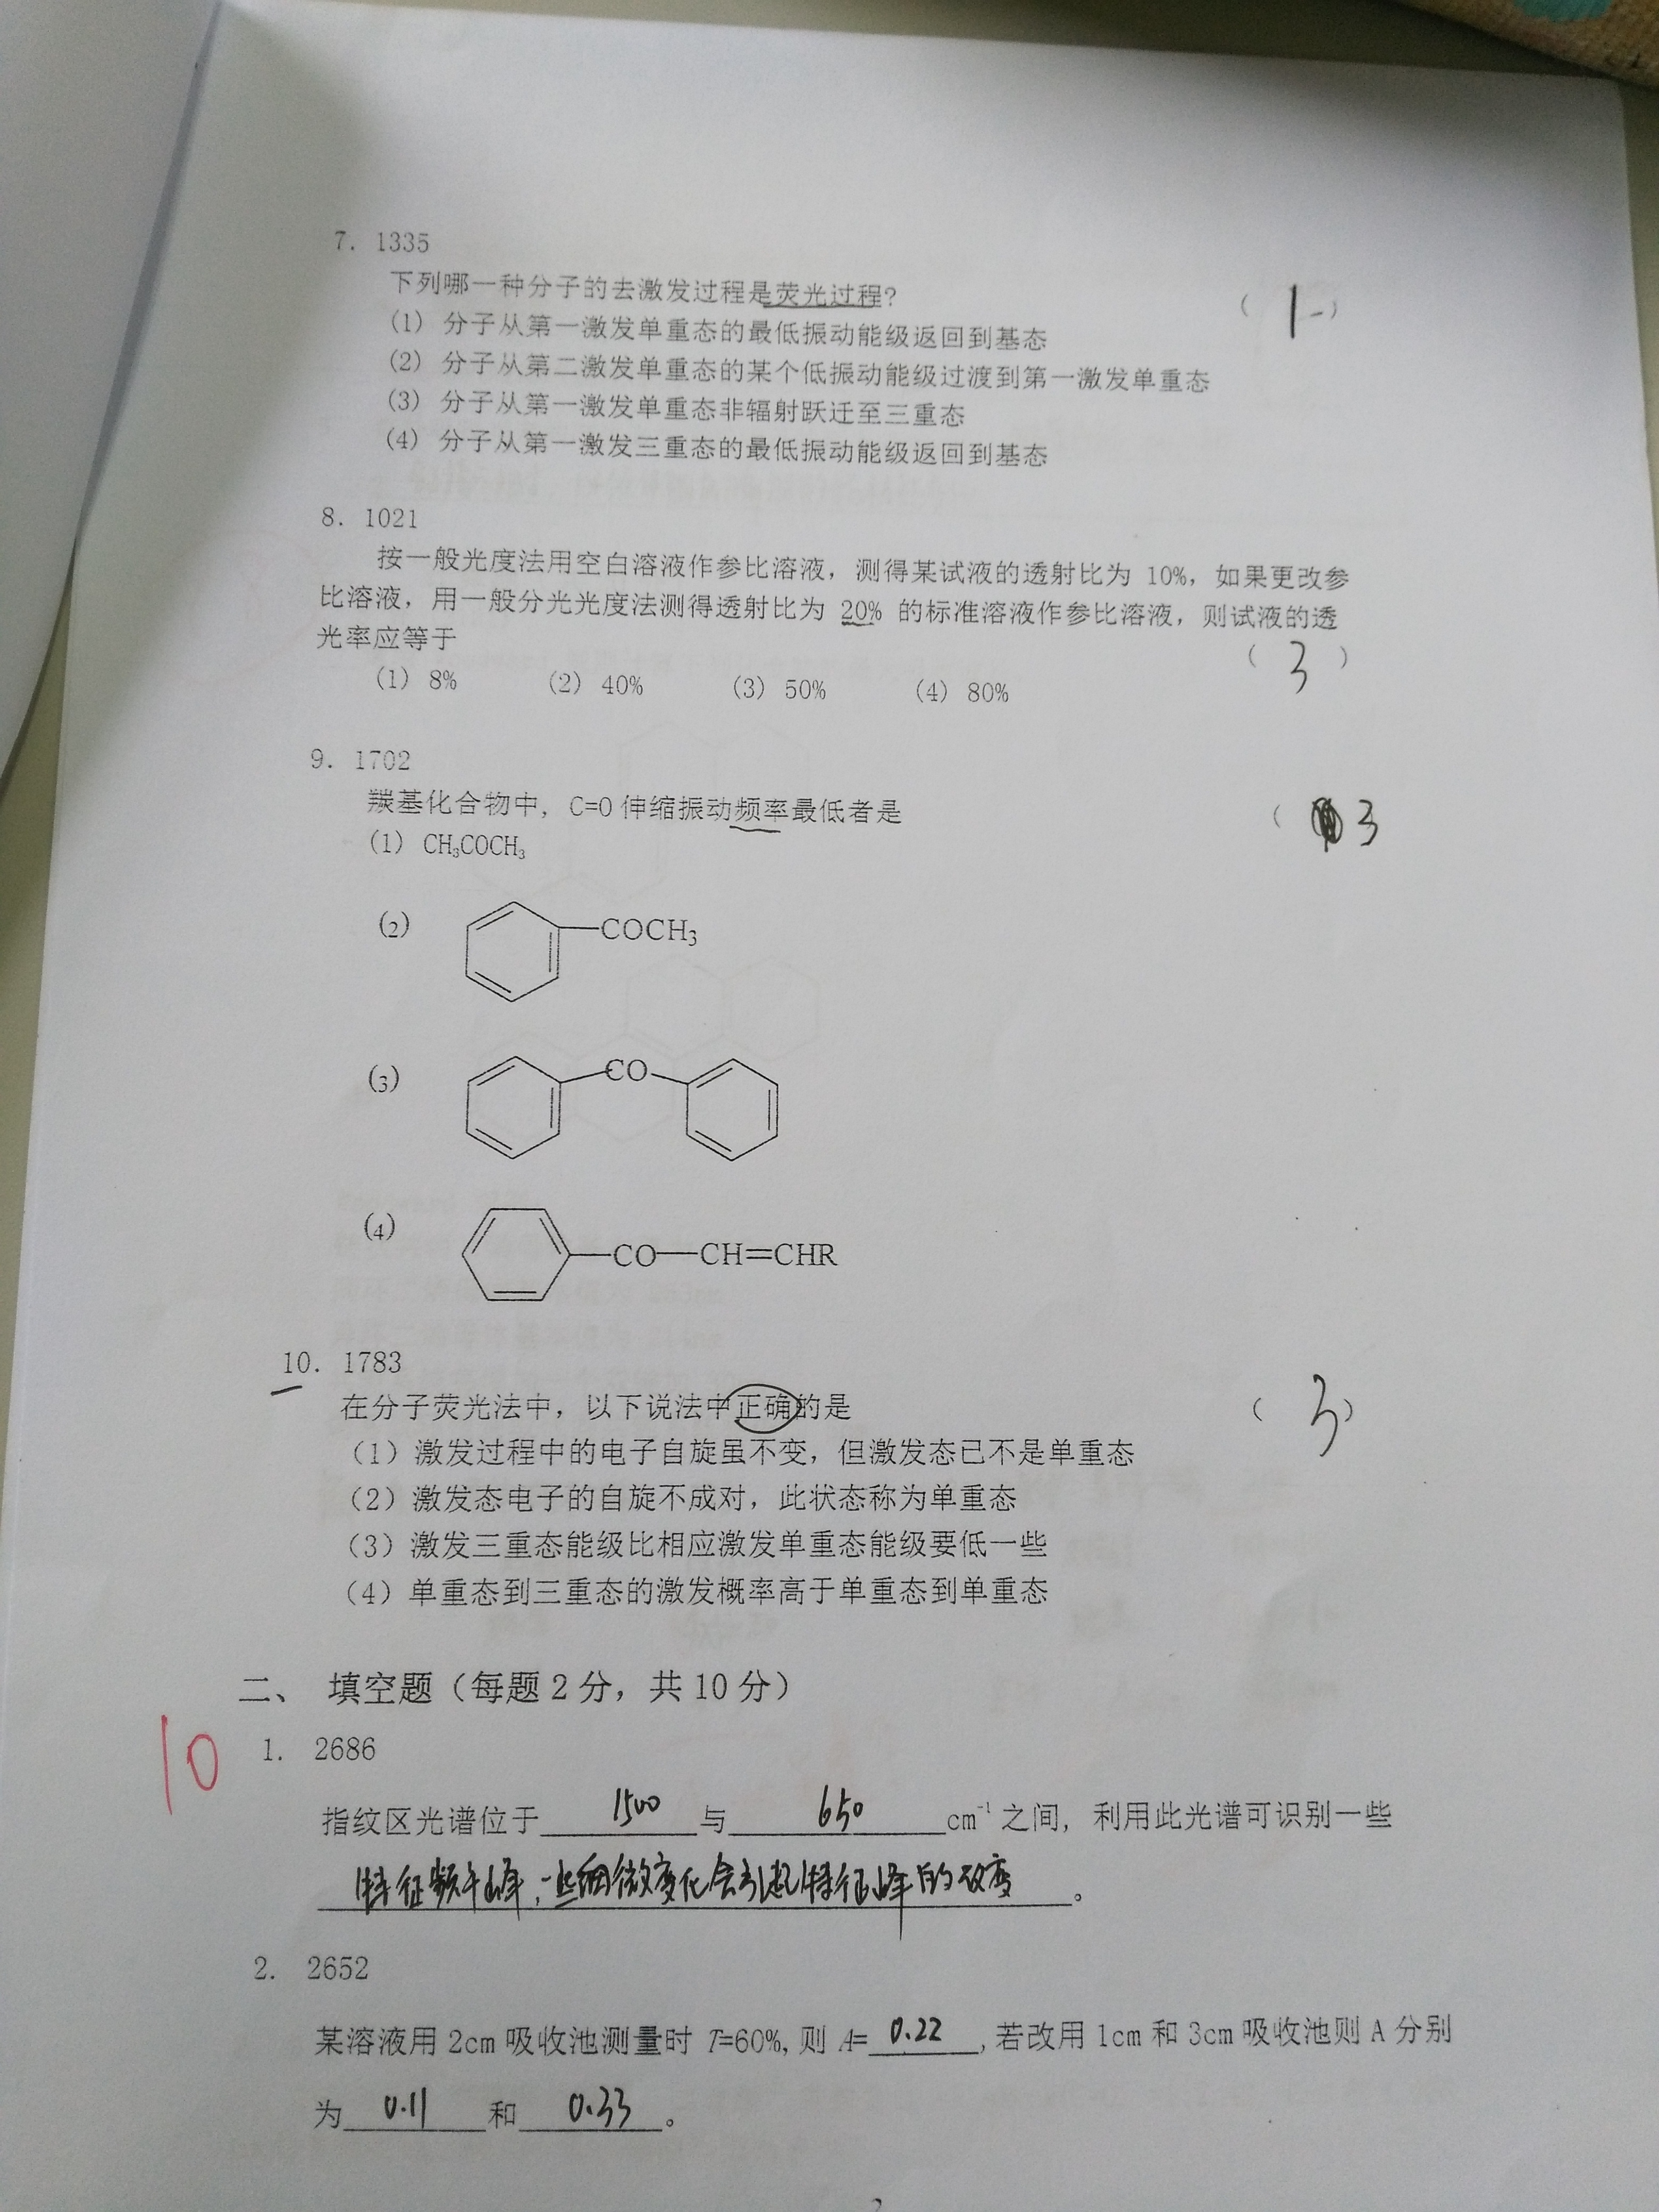 7. 1335
下列哪一种分子的去激发过程是荧光过程? ( 1 )
(1) 分子从第一激发单重态的最低振动能级返回到基态
(2) 分子从第二激发单重态的某个低振动能级过渡到第一激发单重态
(3) 分子从第一激发单重态非辐射跃迁至三重态
(4) 分子从第一激发三重态的最低振动能级返回到基态
8. 1021
按一般光度法用空白溶液作参比溶液，测得某试液的透射比为 10%，如果更改参
比溶液，用一般分光光度法测得透射比为 20% 的标准溶液作参比溶液，则试液的透
光率应等于 ( 3 )
(1) 8% (2) 40% (3) 50% (4) 80%
9. 1702
羰基化合物中, C=O 伸缩振动频率最低者是 ( 3
(1) CH₃COCH₃
(2) COCH₃
(3) CO
(4) CO—CH=CHR
10. 1783
在分子荧光法中，以下说法中正确的是 ( 3 )
（1）激发过程中的电子自旋虽不变，但激发态已不是单重态
（2）激发态电子的自旋不成对，此状态称为单重态
（3）激发三重态能级比相应激发单重态能级要低一些
（4）单重态到三重态的激发概率高于单重态到单重态
二、 填空题（每题 2 分，共 10 分）
10
1. 2686
指纹区光谱位于 1500 与 650 cm⁻¹ 之间, 利用此光谱可识别一些
特征频率峰,一些细微变化会引起特征峰的改变 。
2. 2652
某溶液用 2cm 吸收池测量时 T=60%, 则 A= 0.22 , 若改用 1cm 和 3cm 吸收池则 A 分别
为 0.11 和 0.33 。